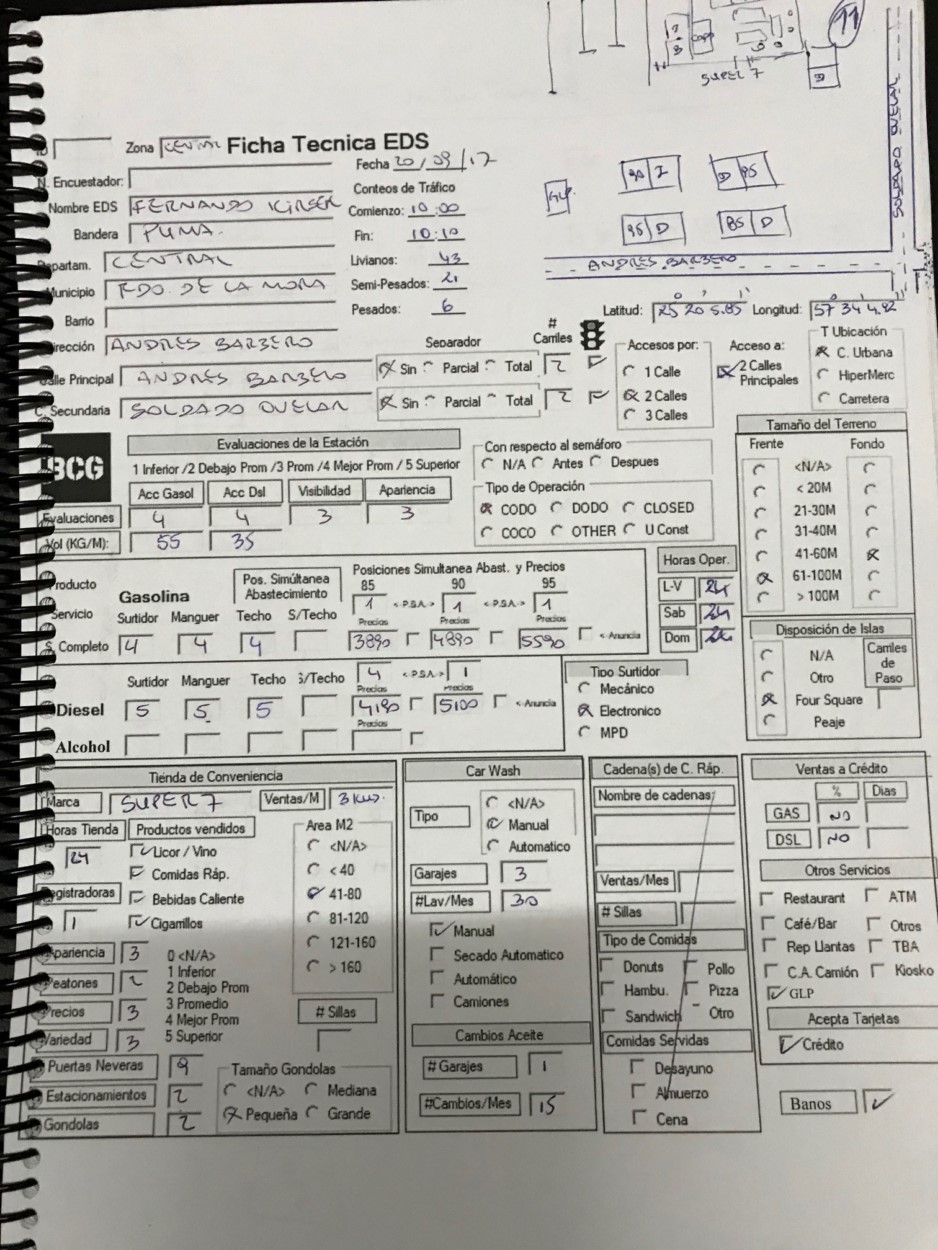 11
SUPER 7
SOLDADO OVELAR
Zona CENTRAL Ficha Tecnica EDS
Fecha 20/09/17
N. Encuestador:
Conteos de Tráfico
Nombre EDS FERNANDO
Comienzo: 10:00
GLP
D 95
95 D
D
Bandera PUMA.
Fin: 10:10
Departam. CENTRAL
Livianos: 43
ANDRES BARBERO
Municipio FDO. DE LA MORA
Semi-Pesados: 21
Barrio
Pesados: 6
Latitud: 25 20 5.85 Longitud: 57 34 4.92
Dirección ANDRES BARBERO
Separador # Carriles
Calle Principal ANDRES BARBERO Sin Parcial Total 2
C. Secundaria SOLDADO OVELAR Sin Parcial Total 2
Accesos por:
1 Calle
2 Calles
3 Calles
Acceso a:
2 Calles Principales
T Ubicación
C. Urbana
HiperMerc
Carretera
BCG
Evaluaciones de la Estación
1 Inferior /2 Debajo Prom /3 Prom /4 Mejor Prom / 5 Superior
Acc Gasol Acc Dsl Visibilidad Apariencia
Evaluaciones 4 4 3 3
Vol (KG/M): 55 35
Con respecto al semáforo
N/A Antes Despues
Tipo de Operación
CODO DODO CLOSED
COCO OTHER U Const
Tamaño del Terreno
Frente Fondo
<N/A>
< 20M
21-30M
31-40M
41-60M
61-100M
> 100M
Producto
Servicio
S. Completo
Gasolina
Pos. Simúltanea Abastecimiento
Posiciones Simultanea Abast. y Precios
85 90 95
Surtidor Manguer Techo S/Techo
1 <-P.S.A.-> 1 <-P.S.A.-> 1
Precios Precios Precios
4 4 4 3890 4890 5590 <-Anuncia
Horas Oper.
L-V 24
Sab 24
Dom 24
Disposición de Islas
N/A
Otro
Four Square
Peaje
Carriles de Paso
Surtidor Manguer Techo S/Techo 4 <-P.S.A.-> 1
Precios Precios
Diesel 5 5 5 4190 5100 <-Anuncia
Precios
Alcohol
Tipo Surtidor
Mecánico
Electronico
MPD
Tienda de Conveniencia
Marca SUPER 7 Ventas/M
Horas Tienda Productos vendidos
24
Licor / Vino
Comidas Ráp.
Registradoras Bebidas Caliente
1 Cigarrillos
Area M2
<N/A>
< 40
41-80
81-120
121-160
> 160
Apariencia 3
Peatones 2
Precios 3
Variedad 3
0 <N/A>
1 Inferior
2 Debajo Prom
3 Promedio
4 Mejor Prom
5 Superior
# Sillas
Puertas Neveras 9
Estacionamientos 2
Gondolas 2
Tamaño Gondolas
<N/A> Mediana
Pequeña Grande
Car Wash
Tipo
<N/A>
Manual
Automatico
Garajes 3
#Lav/Mes 30
Manual
Secado Automatico
Automático
Camiones
Cambios Aceite
# Garajes 1
#Cambios/Mes 15
Cadena(s) de C. Ráp.
Nombre de cadenas:
Ventas/Mes
# Sillas
Tipo de Comidas
Donuts Pollo
Hambu. Pizza
Sandwich Otro
Comidas Servidas
Desayuno
Almuerzo
Cena
Ventas a Crédito
% Dias
GAS NO
DSL NO
Otros Servicios
Restaurant ATM
Café/Bar Otros
Rep Llantas TBA
C.A. Camión Kiosko
GLP
Acepta Tarjetas
Crédito
Banos